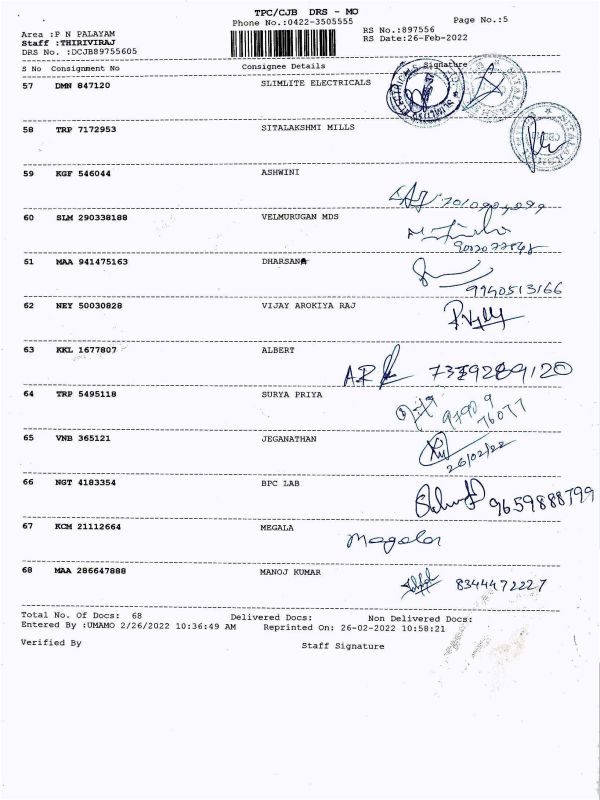 TPC/CJB DRS - MO
Phone No.:0422-3505555
Page No.:5
Area :P N PALAYAM
RS No.:897556
Staff :THIRIVIRAJ
RS Date:26-Feb-2022
DRS No. :DCJB89755605
S No Consignment No Consignee Details Signature
57 DMN 847120 SLIMLITE ELECTRICALS
58 TRP 7172953 SITALAKSHMI MILLS
59 KGF 546044 ASHWINI
60 SLM 290338188 VELMURUGAN MDS
61 MAA 941475163 DHARSANA
9940513166
62 NEY 50030828 VIJAY AROKIYA RAJ
63 KKL 1677807 ALBERT
64 TRP 5495118 SURYA PRIYA
97909
76077
65 VNB 365121 JEGANATHAN
26/02/22
66 NGT 4183354 BPC LAB
9659888799
67 KCM 21112664 MEGALA
Magala
68 MAA 286647888 MANOJ KUMAR
8344472227
Total No. Of Docs: 68 Delivered Docs: Non Delivered Docs:
Entered By :UMAMO 2/26/2022 10:36:49 AM Reprinted On: 26-02-2022 10:58:21
Verified By Staff Signature